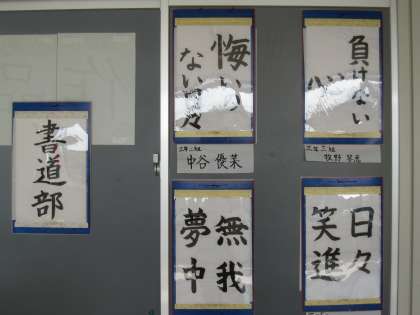 書道部
悔い
ない日々
二年二組
中谷 優菜
負けない
心
三年三組
無我
夢中
日々
笑進